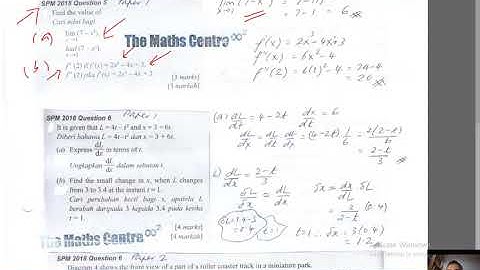 SPM 2018 Question 5
Paper 1
Find the value of
Cari nilai bagi
(a) lim (7 - x²),
x→1
had (7 - x²).
x→1
(b) f''(2) if f'(x) = 2x³ - 4x + 3.
f''(2) jika f'(x) = 2x³ - 4x + 3.
[3 marks]
[3 markah]
= 7 - 1
= 6
f'(x) = 2x³ - 4x + 3
f''(x) = 6x² - 4
f''(2) = 6(2)² - 4 = 24 - 4
= 20
The Maths Centre
SPM 2018 Question 6
Paper 1
It is given that L = 4t - t² and x = 3 + 6t.
Diberi bahawa L = 4t - t² dan x = 3 + 6t.
(a) Express dL/dx in terms of t.
Ungkapkan dL/dx dalam sebutan t.
(b) Find the small change in x, when L changes
from 3 to 3.4 at the instant t = 1.
Cari perubahan kecil bagi x, apabila L
berubah daripada 3 kepada 3.4 pada ketika
t = 1.
[4 marks]
[4 markah]
(a) dL/dt = 4 - 2t dx/dt = 6
dL/dx = dL/dt · dt/dx = (4 - 2t) · 1/6 = 2(2 - t)/6
= 2 - t/3
b) dL/dx = 2 - t/3
δL/δx = dL/dx
δx = dx/dL · δL
= 3/2 - t (0.4)
t = 1
= 1.2
The Maths Centre
SPM 2018 Question 6
Paper 2
Diagram 4 shows the front view of a part of a roller coaster track in a miniature park.